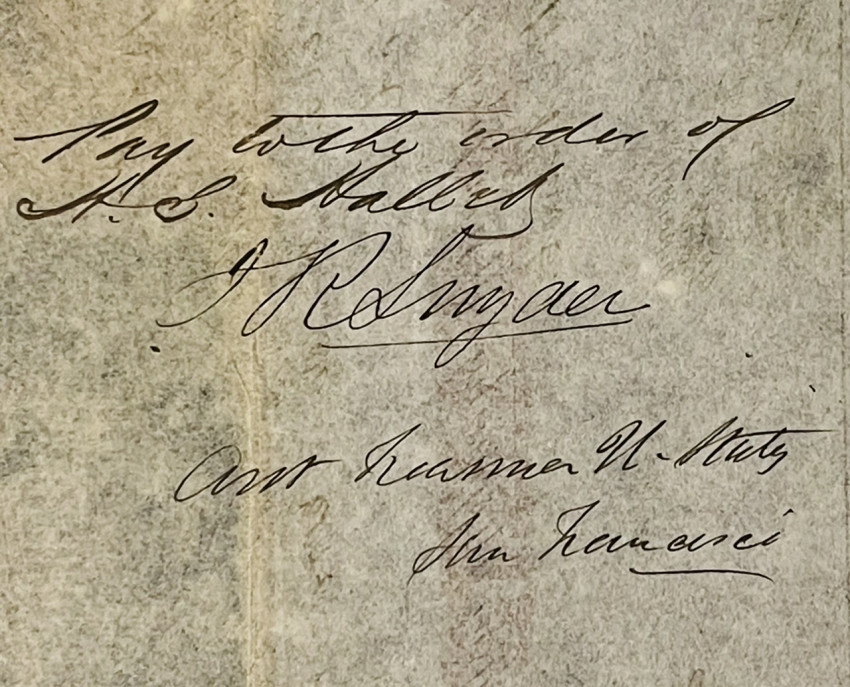 Pay to the order of
H. S. Halleck
J R Snyder
Asst Treasurer U. States
San Francisco